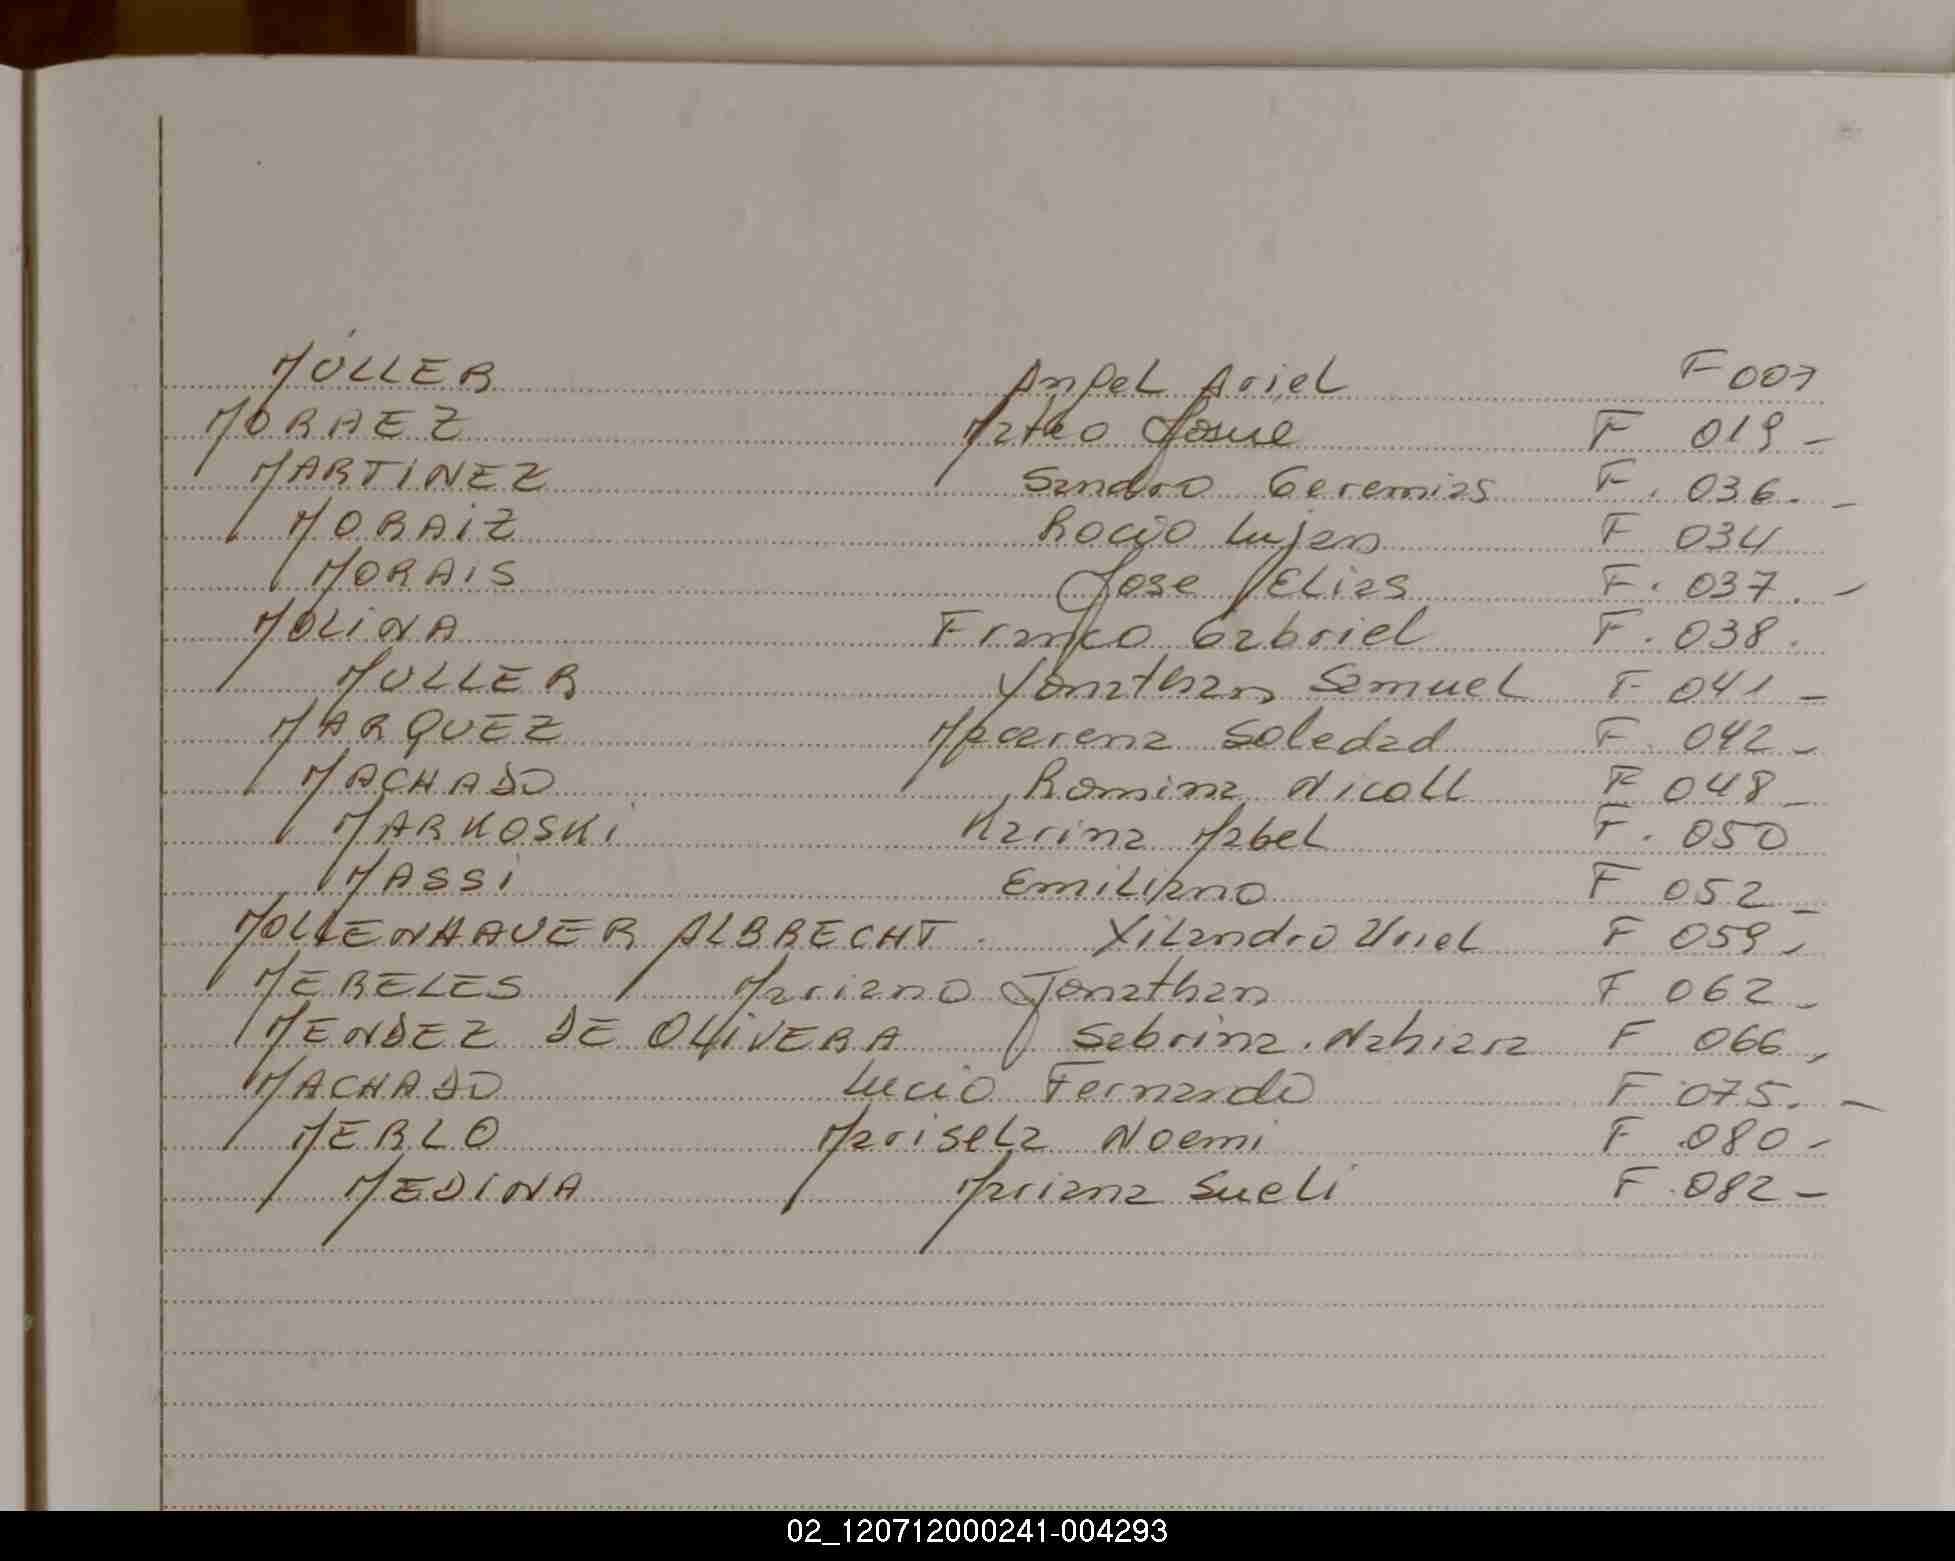 MÚLLER Angel Ariel F 007
MORAEZ Mateo Josué F 019 -
MARTINEZ Sandro Geremias F. 036. -
MORAIZ Rocio Lujan F 034
MORAIS Jose Elias F. 037. -
MOLINA Franco Gabriel F. 038.
MULLER Yonathan Samuel F 041 -
MARQUEZ Macarena Soledad F. 042 -
MACHADO Romina Nicoll F 048 -
MARKOSKI Karina Mabel F. 050
MASSI Emiliano F 052 -
MOLLENHAUER ALBRECHT. Xilandro Uriel F 059 -
MERELES Mariano Jonathan F 062 -
MENDEZ DE OLIVERA Sabrina. Nahiara F 066 -
MACHADO Lucio Fernando F 075. -
MERLO Marisela Noemi F 080 -
MEDINA Mariana Sueli F. 082 -
02_120712000241-004293